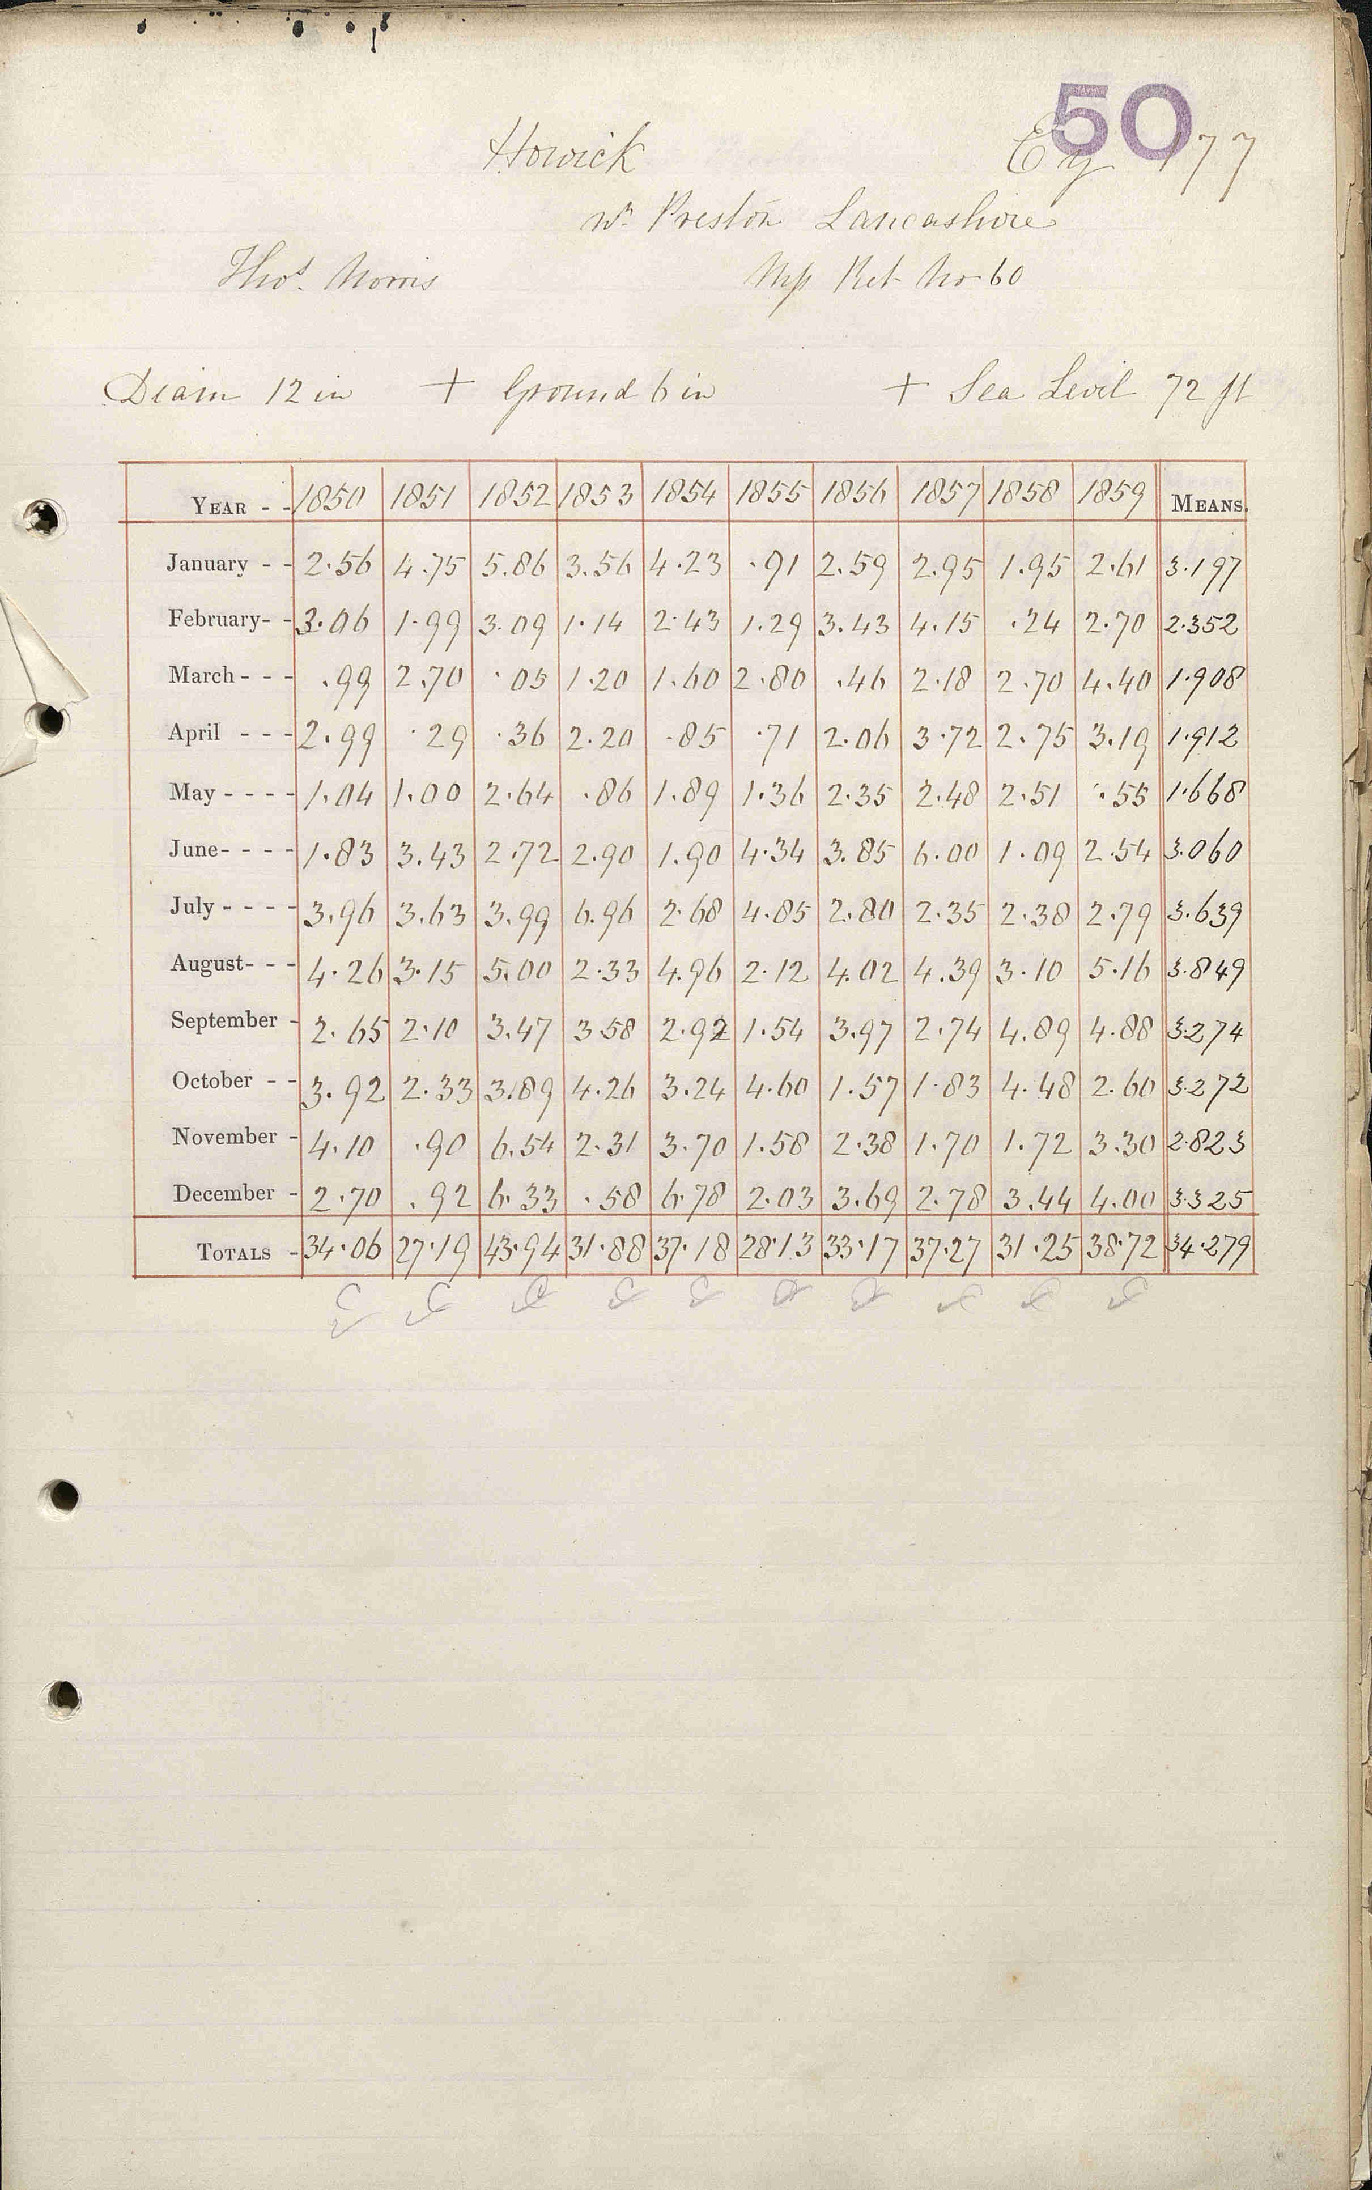 50
Howick
177
nr Preston Lancashire
Thos. Norris
Ret No 60
Diam 12 in + Ground 6 in + Sea Level 72 ft
YEAR - - 1850 1851 1852 1853 1854 1855 1856 1857 1858 1859 MEANS.
January - - 2.56 4.75 5.86 3.56 4.23 .91 2.59 2.95 1.95 2.61 3.197
February- - 3.06 1.99 3.09 1.14 2.43 1.29 3.43 4.15 .24 2.70 2.352
March - - - .99 2.70 .05 1.20 1.60 2.80 .46 2.18 2.70 4.40 1.908
April - - - 2.99 .29 .36 2.20 .85 .71 2.06 3.72 2.75 3.19 1.912
May - - - - 1.04 1.00 2.64 .86 1.89 1.36 2.35 2.48 2.51 .55 1.668
June- - - - 1.83 3.43 2.72 2.90 1.90 4.34 3.85 6.00 1.09 2.54 3.060
July - - - - 3.96 3.63 3.99 6.96 2.68 4.85 2.80 2.35 2.38 2.79 3.639
August- - - 4.26 3.15 5.00 2.33 4.96 2.12 4.02 4.39 3.10 5.16 3.849
September - 2.65 2.10 3.47 3.58 2.92 1.54 3.97 2.74 4.89 4.88 3.274
October - - 3.92 2.33 3.89 4.26 3.24 4.60 1.57 1.83 4.48 2.60 3.272
November - 4.10 .90 6.54 2.31 3.70 1.58 2.38 1.70 1.72 3.30 2.823
December - 2.70 .92 6.33 .58 6.78 2.03 3.69 2.78 3.44 4.00 3.325
TOTALS - 34.06 27.19 43.94 31.88 37.18 28.13 33.17 37.27 31.25 38.72 34.279